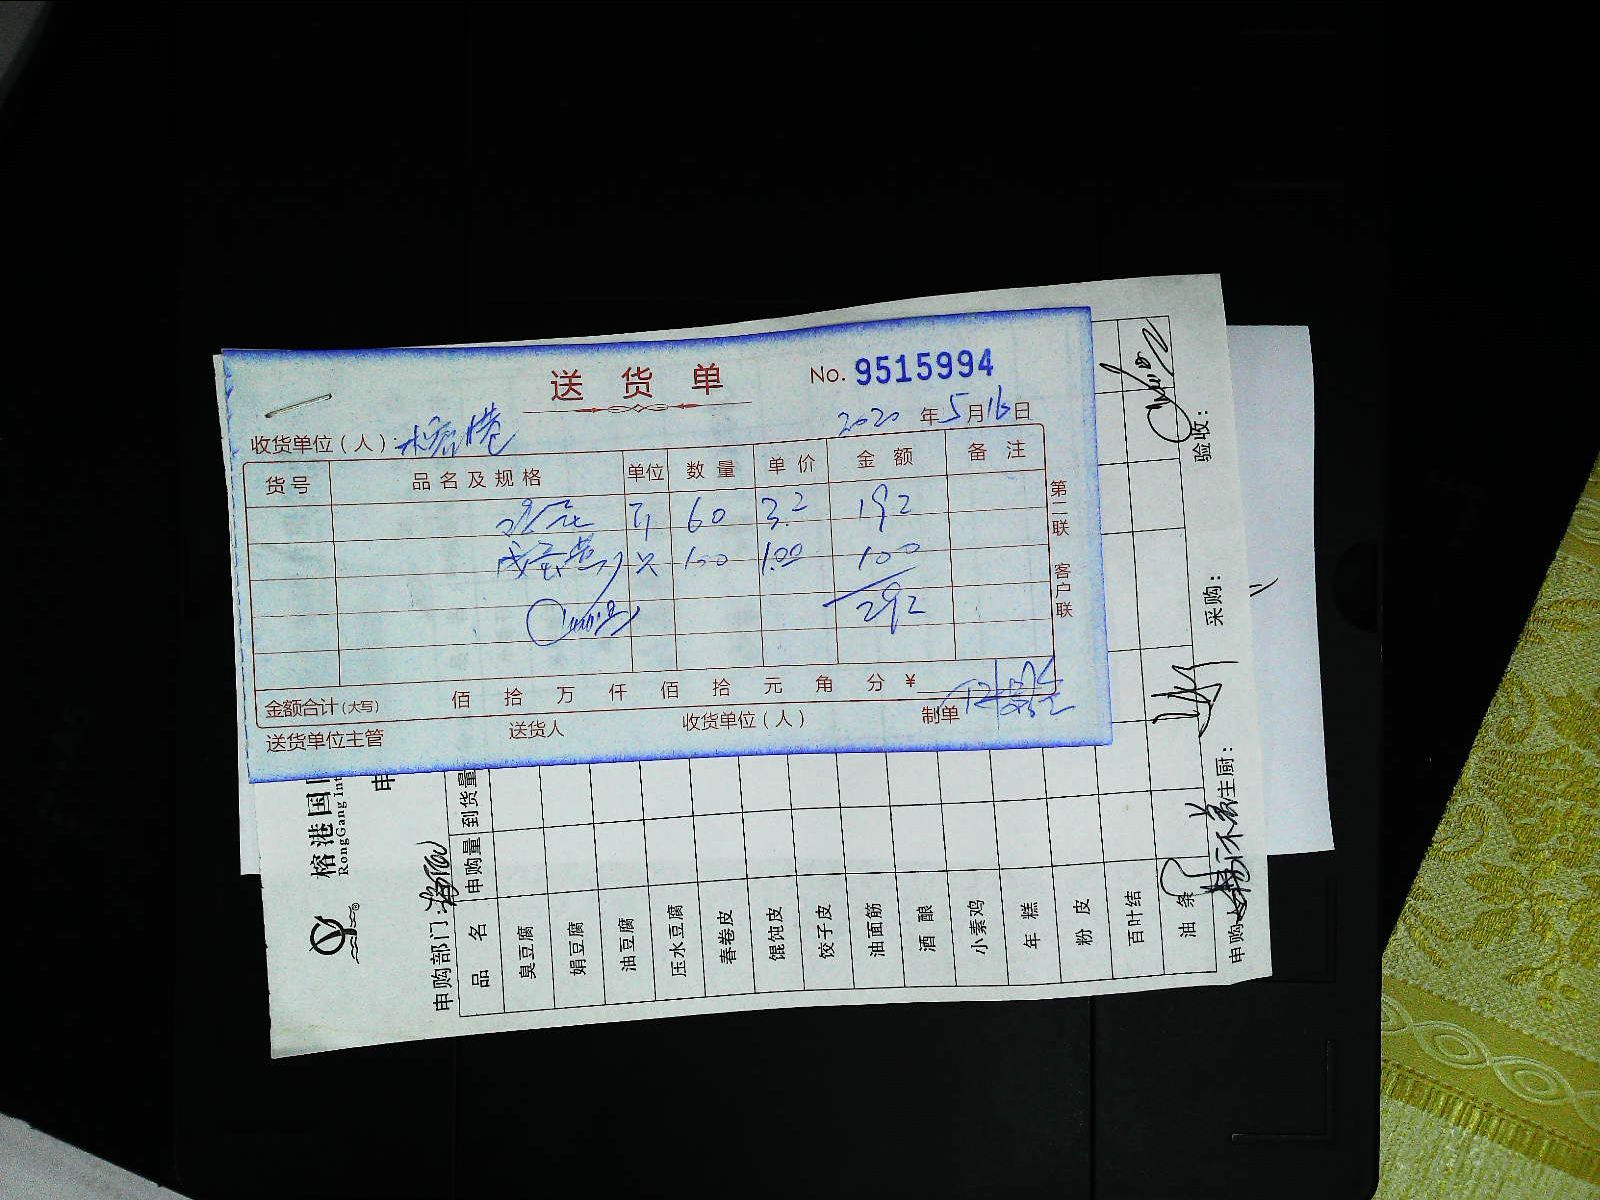 送货单
No. 9515994
收货单位（人）：榕港
2020 年 5 月 16 日
货号 品名及规格 单位 数量 单价 金额 备注
60 3.2 192
只 100 1.00 100
292
金额合计（大写） 佰 拾 万 仟 佰 拾 元 角 分 ¥
送货单位主管 送货人 收货单位（人） 制单
第二联 客户联
榕港国
RongGang Int
申
申购部门：
品名 申购量 到货量
臭豆腐
娟豆腐
油豆腐
压水豆腐
春卷皮
馄饨皮
饺子皮
油面筋
酒酿
小素鸡
年糕
粉皮
百叶结
油条
申购 主厨： 采购： 验收：